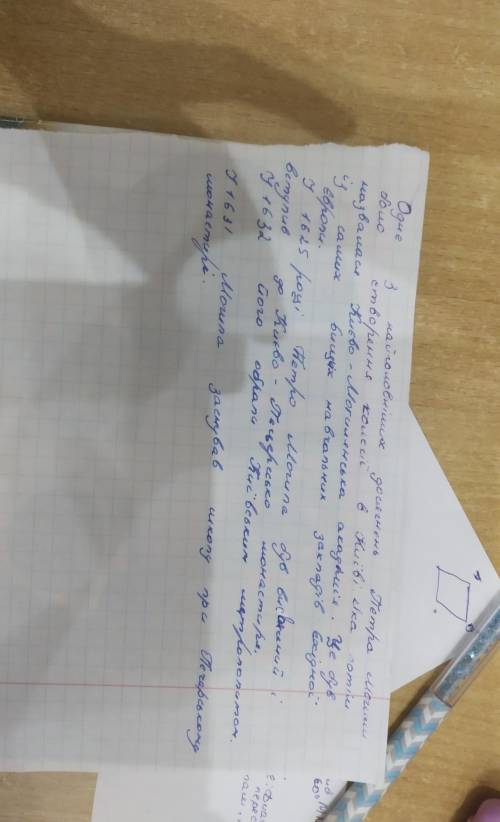 Одне з найголовніших досягнень Петра Могили
було створення колегії в Київі яка потім
назвалася Києво-Могилянська академія. Це був
із самих вищих навчальних закладів Східної
Європи.
У 1625 році Петро Могила був висвячений і
вступив до Києво-Печерсько монастиря,
У 1632 його обрали Київським митрополитом.
У 1631 Могила заснував школу при Печерському
монастирі.